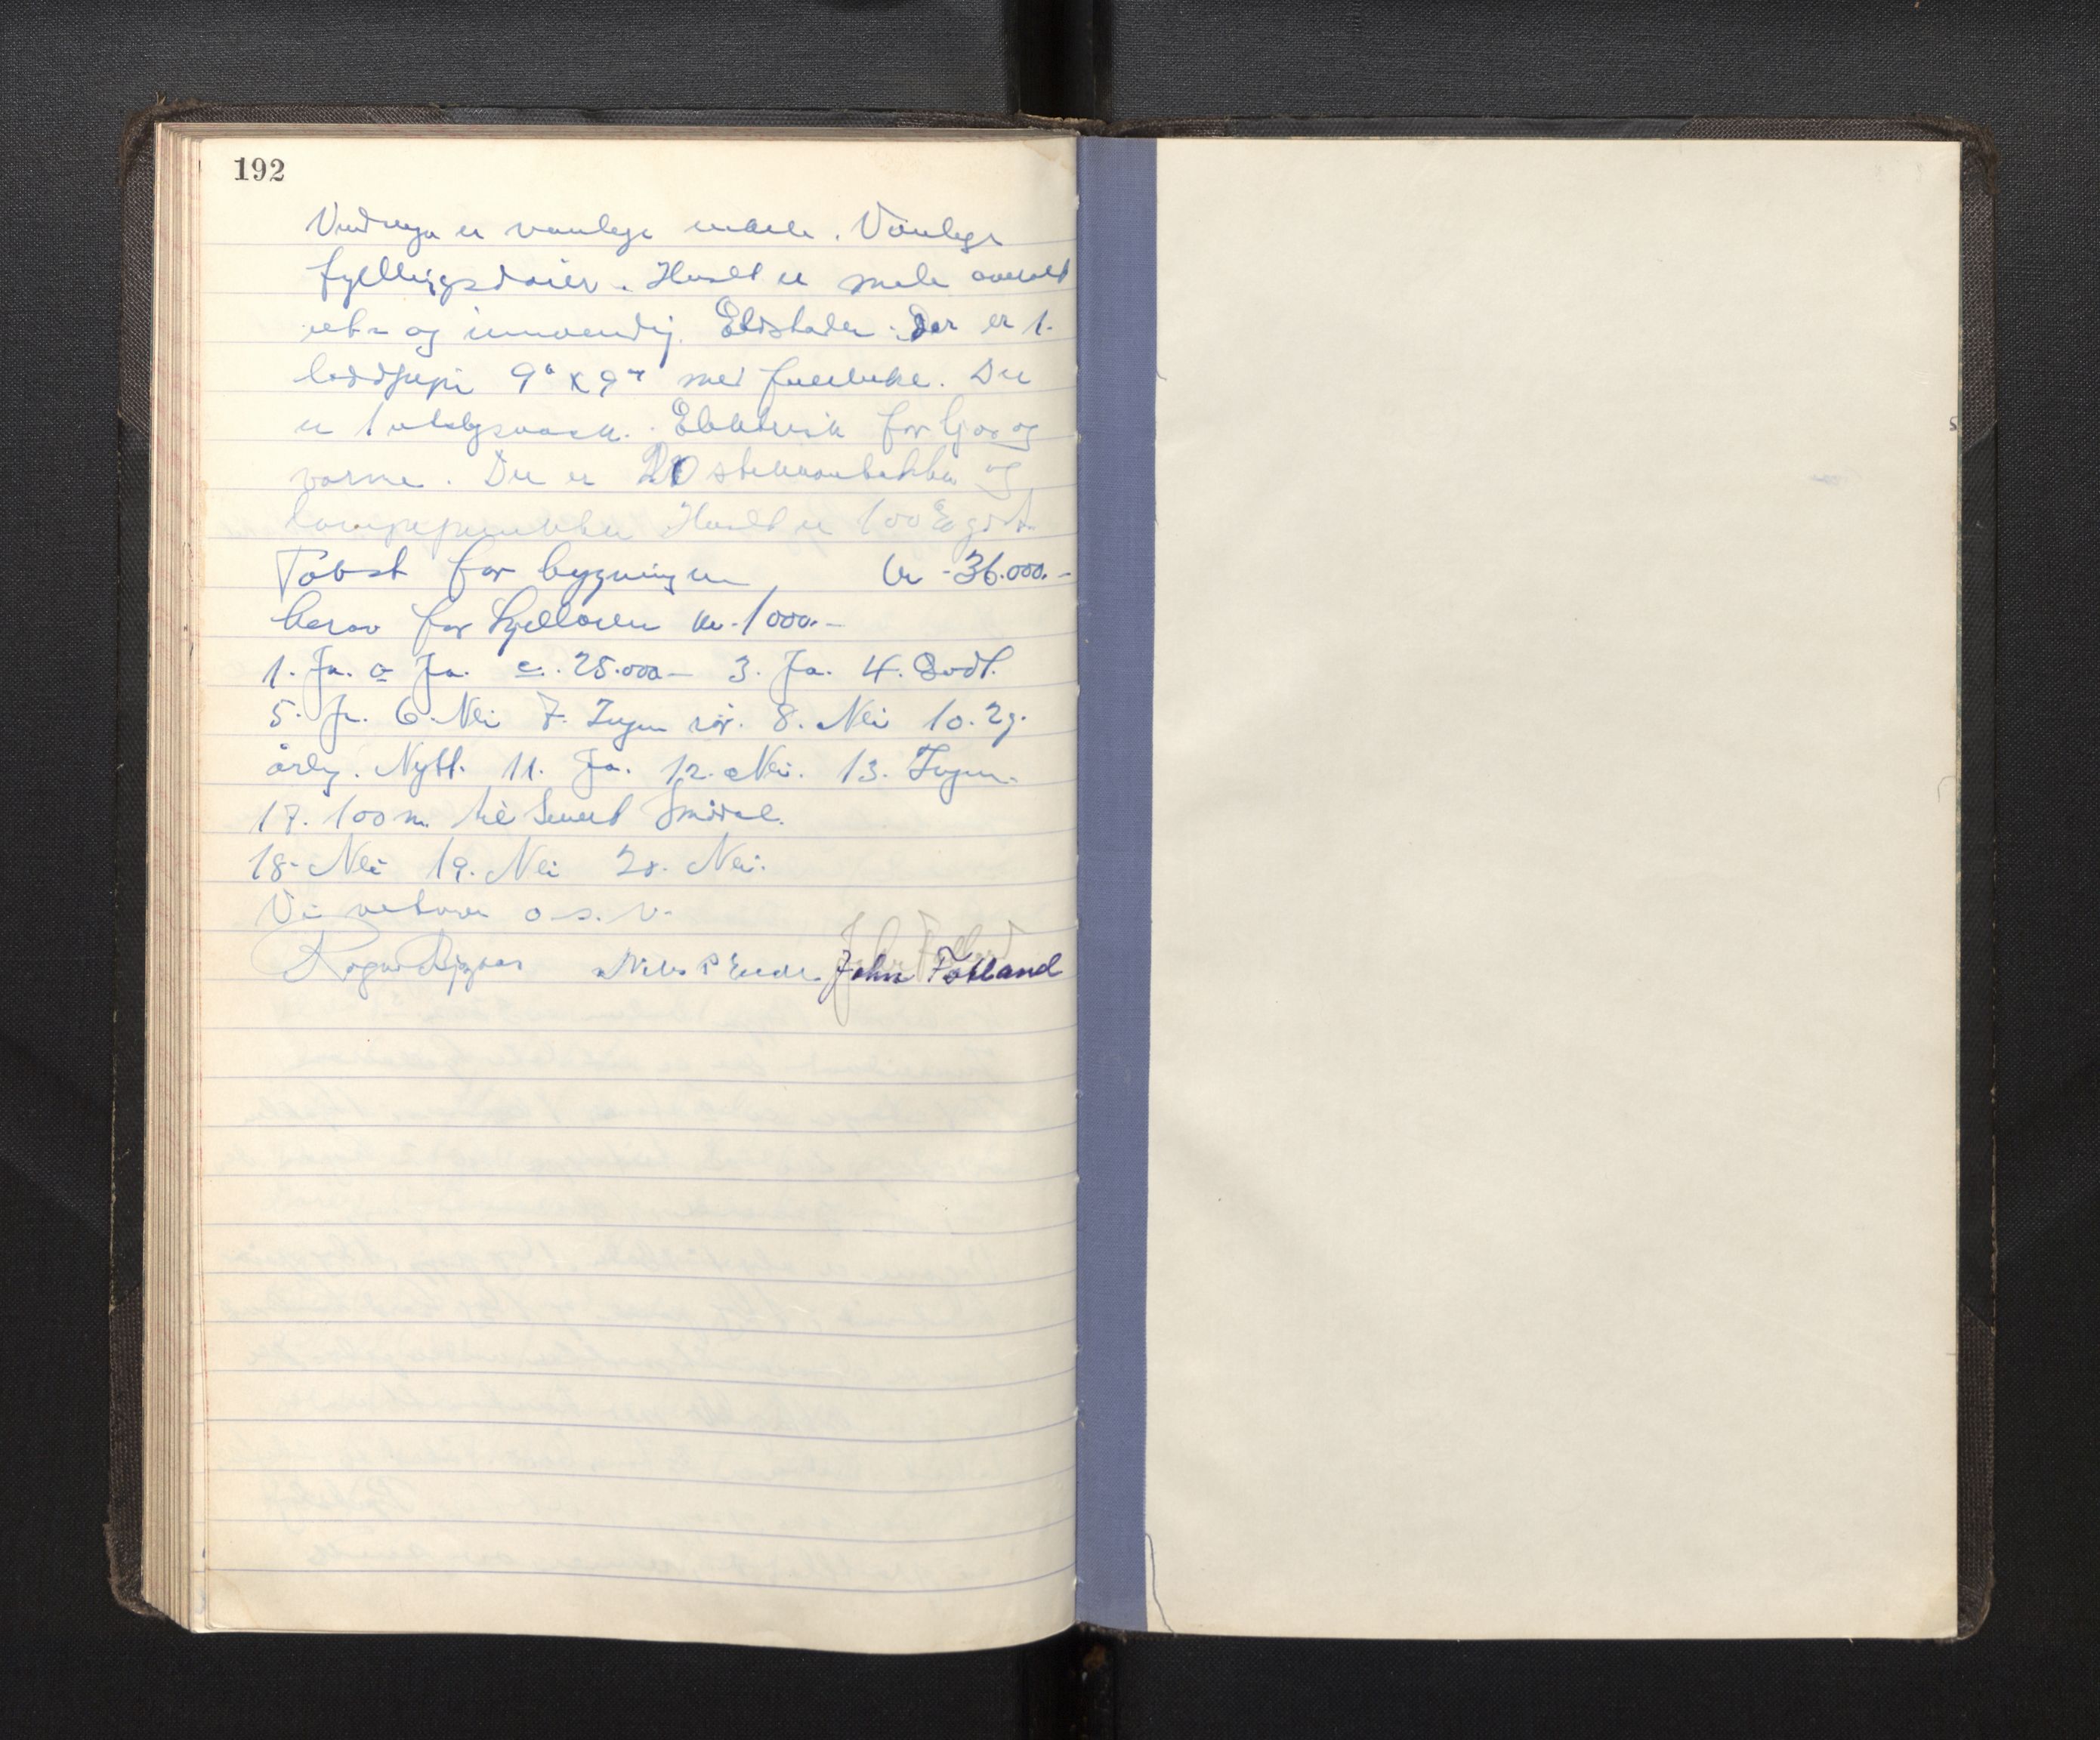 192
Vindauga er vanlege male. Vanlege
fyllingsdører. Huset er male overalt
ut- og innvendig. Eldstader: Der er 1.
loddpipe 9" x 9" med feieluke. Der
er 1 utslgsvask. Elektrisk for ljos og
varme. Der er 20 stikkontakter og
lampepunkter Huset er 100 % godt.
Takst for bygningen kr - 36.000.-
herav for kjelleren kr. 1000.-
1. Ja. a Ja. c. 25.000- 3. Ja. 4. Godt.
5. Ja. 6. Nei 7. Ingen rør. 8. Nei 10. 2 g.
årleg. Nytt. 11. Ja. 12. Nei. 13. Ingen.
17. 100 m. til Smidal.
18. Nei 19. Nei 20. Nei.
Vi vedtar o.s.v.
Nils P John Fotland